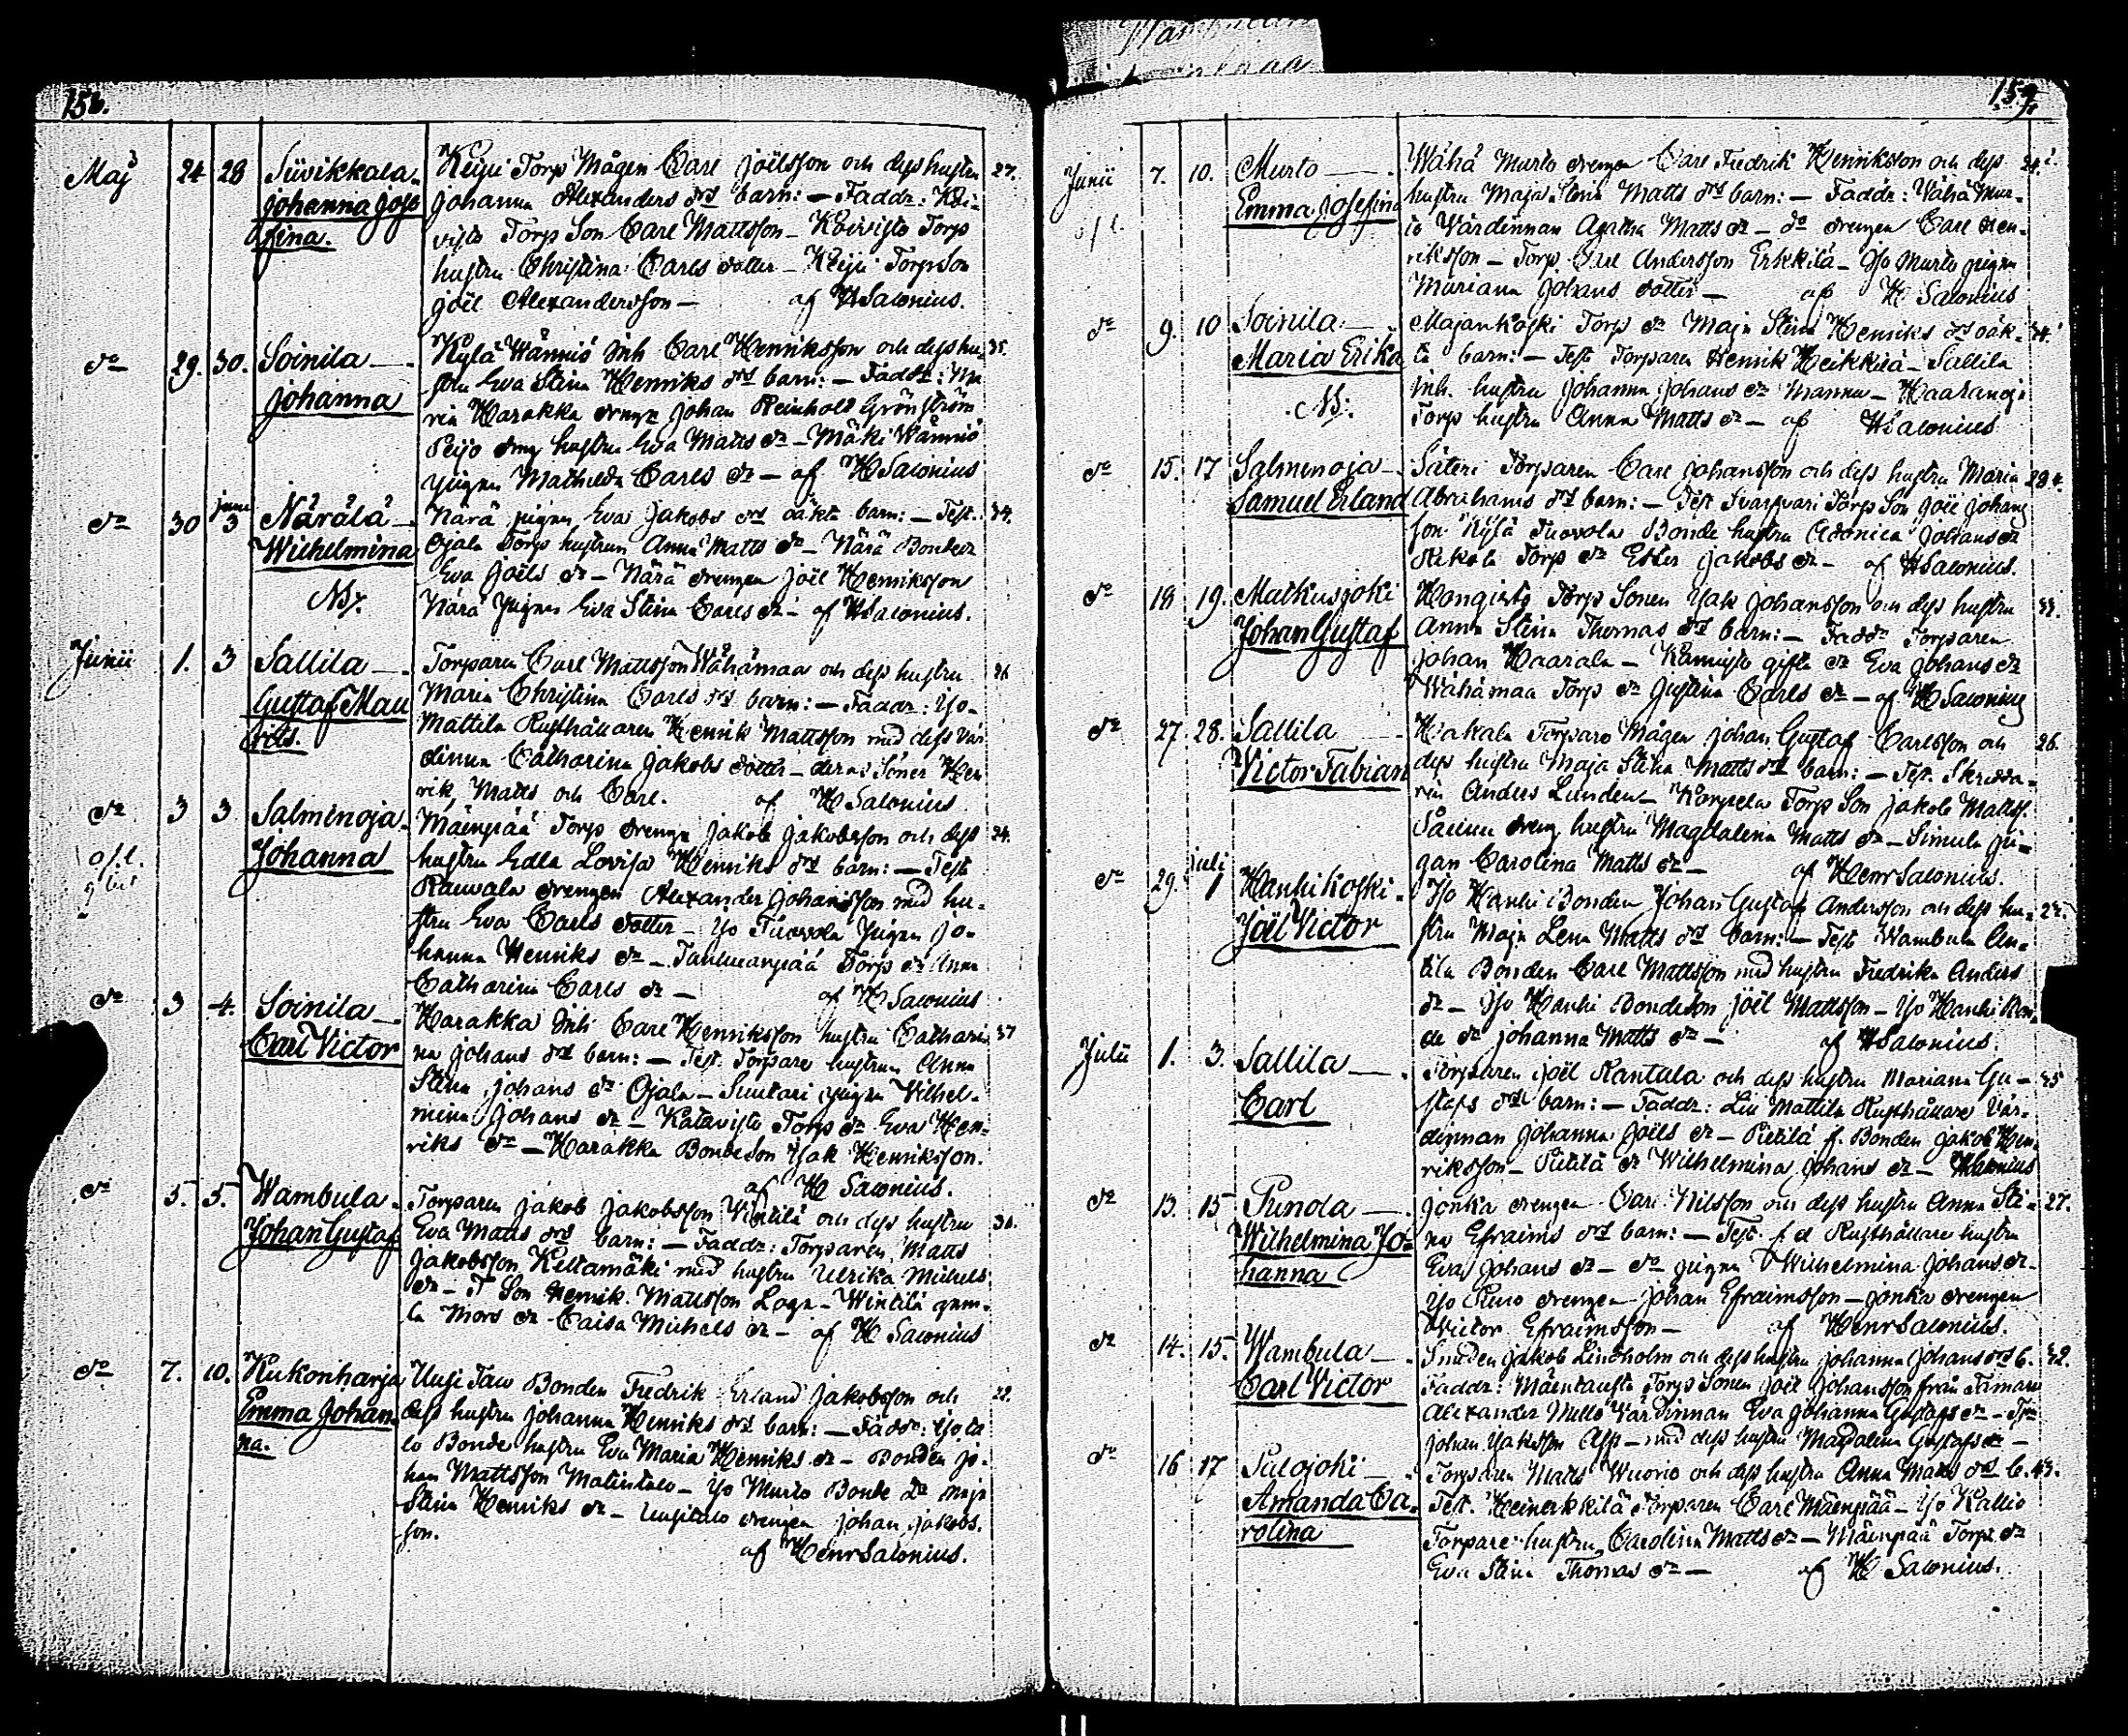 158.
Maj 24 28 Siivikkala
Johanna Jose
fina.
Keiju Torps Mågen Carl Joëlsson och dess hustru 27.
Johanna Alexanders drs barn: — Faddr: Koi-
visto Torps Son Carl Mattsson — Koivisto Torps
hustru Christina Carls dotter — Keiju Torps Son
Joël Alexandersson — af HSalonius.
do 29. 30. Soinila —
Johanna
Kylä Wänniö Inh Carl Henriksson och dess hu- 35.
stru Eva Stina Henriks drs barn: — Faddr: Ma
ria Harakka drengn Johan Reinhold Grönström
Peijo dreng hustru Eva Matts dr — Mäki Wänniö
pigan Mathilda Carls dr — af HSalonius
do 30 Juni 3 Närälä —
Wilhelmina
Nb.
Närä pigan Eva Jakobs drs oäkta barn: — Test. 34.
Ojala Torps hustrun Anna Matts dr — Närä Bonde
Eva Joëls dr — Närä drengen Joël Henriksson
Närä pigan Eva Stina Carls dr — af HSalonius.
Junii 1. 3 Sallila —
Gustaf Mau
rits.
Torparen Carl Mattsson Wähämaa och dess hustru
Maria Christina Carls drs barn: — Faddr: Yso-
Mattila Rusthållaren Henrik Mattsson med dess vär
dinna Catharina Jakobs dotter — deras Söner Hen
rik, Matts och Carl. af H Salonius
do 3 3 Salminoja
Johanna
Mäenpää Torps drengn Jakob Jakobsson och dess 24.
hustru Edla Lovisa Henriks drs barn: — Test
Rauvala drengen Alexander Johansson med hu-
stru Eva Carls dotter — Yso Tuovola Pigan Jo-
hanna Henriks dr — Torps dr Anna
Catharina Carls dr — af H Salonius
do 3 4. Soinila —
Carl Victor
Harakka Inh Carl Henriksson hustru Cathari 37
na Johans drs barn: — Test. Torpare hustrun Anna
Stina Johans dr Ojala — Suutari pigan Vilhel-
mina Johans dr — Katavisto Torps dr Eva Hen-
riks dr — Harakka Bondeson Isak Henriksson.
af H Salonius.
do 5. 5. Wambula
Johan Gustaf
Torparen Jakob Jakobsson Wintilä och dess hustru
Eva Matts drs barn: — Faddr: Torparen Matts
Jakobsson Keltamäki med hustru Ulrika Michels
dr — T Son Henrik Mattsson Laga — Wintilä gam-
la Mors dr Caisa Michels dr — af H Salonius
do 7. 10. Kukonharja
Emma Johan
na.
Uusi Taw Bonden Fredrik Erland Jakobsson och 22.
dess hustru Johanna Henriks drs barn: — Faddr: Yso ta
lo Bonde hustru Eva Maria Henriks dr — Bonden Jo-
han Mattsson Matintalo — Yso Murto Bonde dr Maja
Stina Henriks dr — Uusitalo drengen Johan Jakobs-
son. af HenrSalonius.
159.
Junii 7. 10. Murto —
Emma Josefina
Wähä Murto drengen Carl Fredrik Henriksson och dess 24.
hustru Maja Stina Matts drs barn: — Faddr: Wähä Mur-
to Wärdinnan Agatha Matts dr — do drengen Carl Hen-
riksson — Torp. Carl Andersson Erkkilä — Yso Murto pigan
Mariana Johans dotter — af H Salonius
do 9. 10 Soinila —
Maria Erika
Nb.
Majankoski Torps dr Maja Stina Henriks drs oäk-
ta barn: — Test Torparen Henrik Heikkilä — Sallila
Inh. hustru Johanna Johans dr Mannu — Haaranoja
Torps hustru Anna Matts dr — af HSalonius
do 15. 17 Salmenoja
Samuel Erland
Säteri Torparen Carl Johansson och dess hustru Maria
Abrahams drs barn: — Test Torps Son Joël Johans
son Kylä Tuovola Bonde hustru Adonica Johans dr
Torps dr Ester Jakobs dr — af HSalonius.
do 18 19. Matkusjoki
Johan Gustaf
Hongisto Torps Sonen Isak Johansson och dess hustru 33.
Anna Stina Thomas drs barn: — Faddr Torparen
Johan Haarala — Kämistö gifta dr Eva Johans dr
Wähämaa Torps dr Gustina Carls dr — af H Salonius
do 27. 28. Sallila —
Victor Fabian
Hakala Torpare Mågen Johan Gustaf Carlsson och 26.
dess hustru Maja Stina Matts drs barn: — Test. Skrädda-
ren Anders Lunden — Karpela Torps Son Jakob Mattss.
dreng hustru Magdalena Matts dr — Simula pi-
gan Carolina Matts dr — af HenrSalonius.
do 29. Juli 1 Hanhikoski
Joël Victor
Yso Hanhi Bonden Johan Gustaf Andersson och dess hu-
stru Maja Lena Matts drs barn: — Test Wambula An-
tila Bonden Carl Mattsson med hustru Fredrika Anders
dr — Yso Hanhi Bondeson Joël Mattsson — Yso Hanhi Bon-
de dr Johanna Matts dr — af HSalonius.
Julii 1. 3. Sallila —
Carl
Torparen Joël Rantala och dess hustru Mariana Gu-
stafs drs barn: — Faddr: Liu Mattila Rusthållare Vär-
dinnan Johanna Joëls dr — Pietilä f. Bonden Jakob Hen-
riksson — Pietilä dr Wilhelmina Johans dr — HSalonius
do 13. 15 Punola —
Wilhelmina Jo-
hanna
Jonka drengen Carl Nilsson och dess hustru Anna Sti- 27.
na Efraims drs barn: — Test. f d Rusthållare hustru
Eva Johans dr — do pigan Wilhelmina Johans dr —
Yso drengen Johan Efraimsson — Jonka drengen
Victor Efraimsson — af HenrSalonius.
do 14. 15. Wambula —
Carl Victor
Smeden Jakob Lindholm och dess hustru Johanna Johans drs b. 42.
Faddr: Mäentausta Torps Sonen Joël Johansson från
Alexander Mello Värdinnan Eva Johanna Gustafs dr —
Johan — med dess hustru Magdalena Gustafs dr —
do 16 17 Suojoki —
Amanda Ca-
rolina
Torparen Matts Wuorio och dess hustru Anna Matts drs b. 43.
Test. Heinikkilä Torparen Carl Mäenpää — Yso Kallio
Torpare hustru Carolina Matts dr — Mäenpää Torps dr
Eva Stina Thomas dr — af H Salonius.